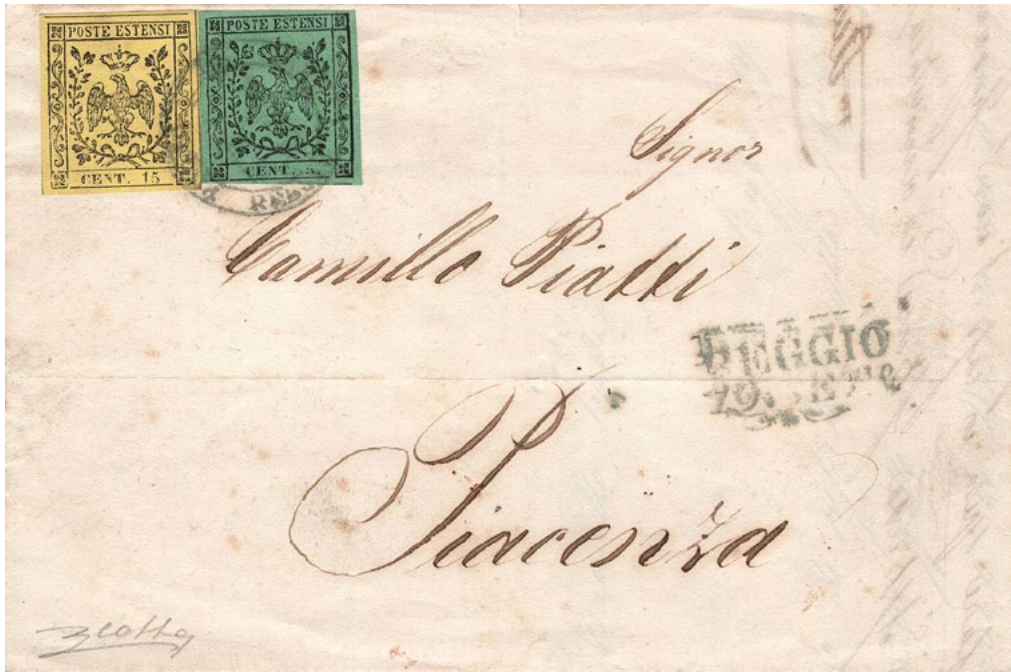 POSTE ESTENSI
CENT. 15
POSTE ESTENSI
CENT. 5.
Signor
Camillo Piatti
REGGIO
19. SETTE
Piacenza